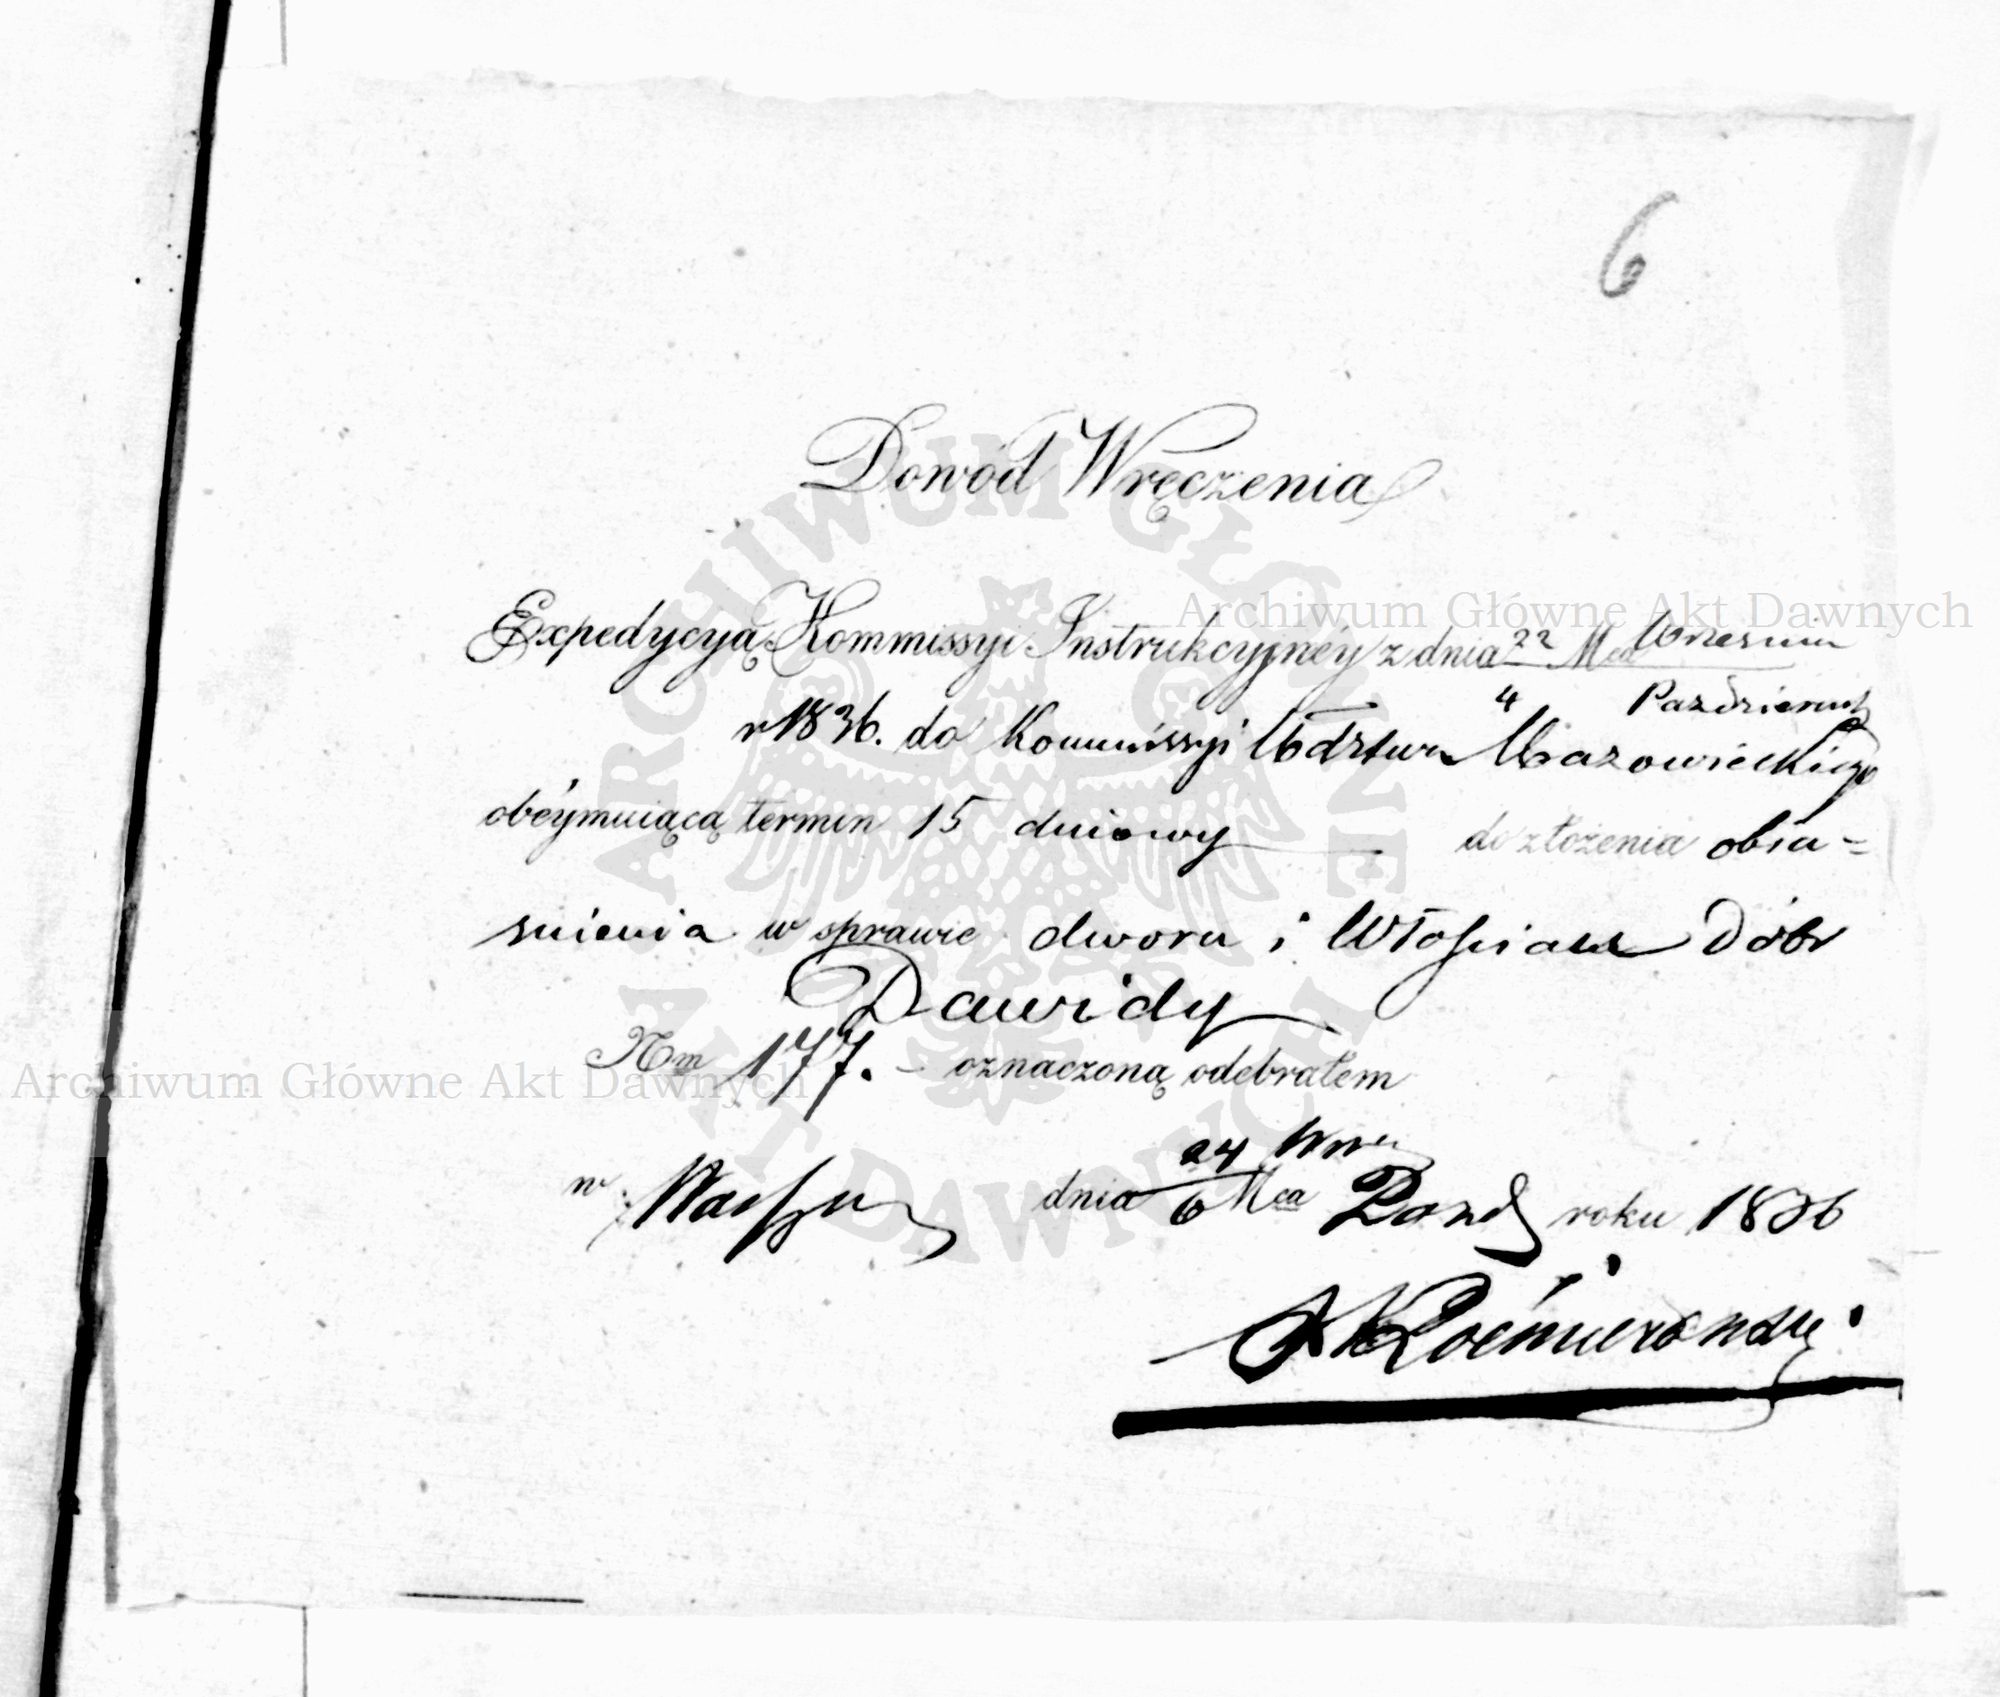 6
Dowód Wręczenia
Expedycyą Kommissyi Instrukcyjnéy z dnia 22 Mca Wrzesnia
4 Pazdziernik
r 1836. do Kommissyi Wdztwa Mazowieckiego
obéymuiącą termin 15 dniowy do złożenia obia=
snienia w sprawie dworu i Włościan Dóbr
Dawidy
Nrm 177. - oznaczoną odebrałem
24 Wrze
w dnia 6 Mca Pazd roku 1836
Archiwum Główne Akt Dawnych
Archiwum Główne Akt Dawnych
ARCHIWUM GŁÓWNE AKT DAWNYCH